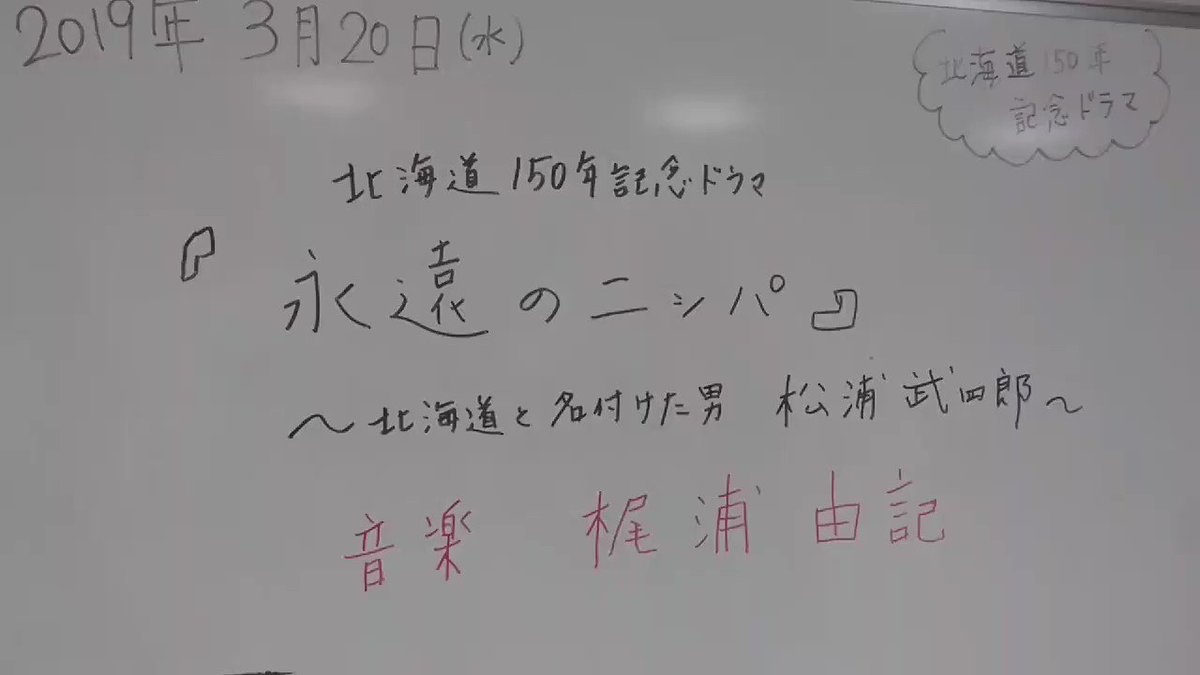 2019年 3月20日(水)
北海道150年
記念ドラマ
北海道150年記念ドラマ
『永遠のニシパ』
〜北海道と名付けた男 松浦武四郎〜
音楽 梶浦由記